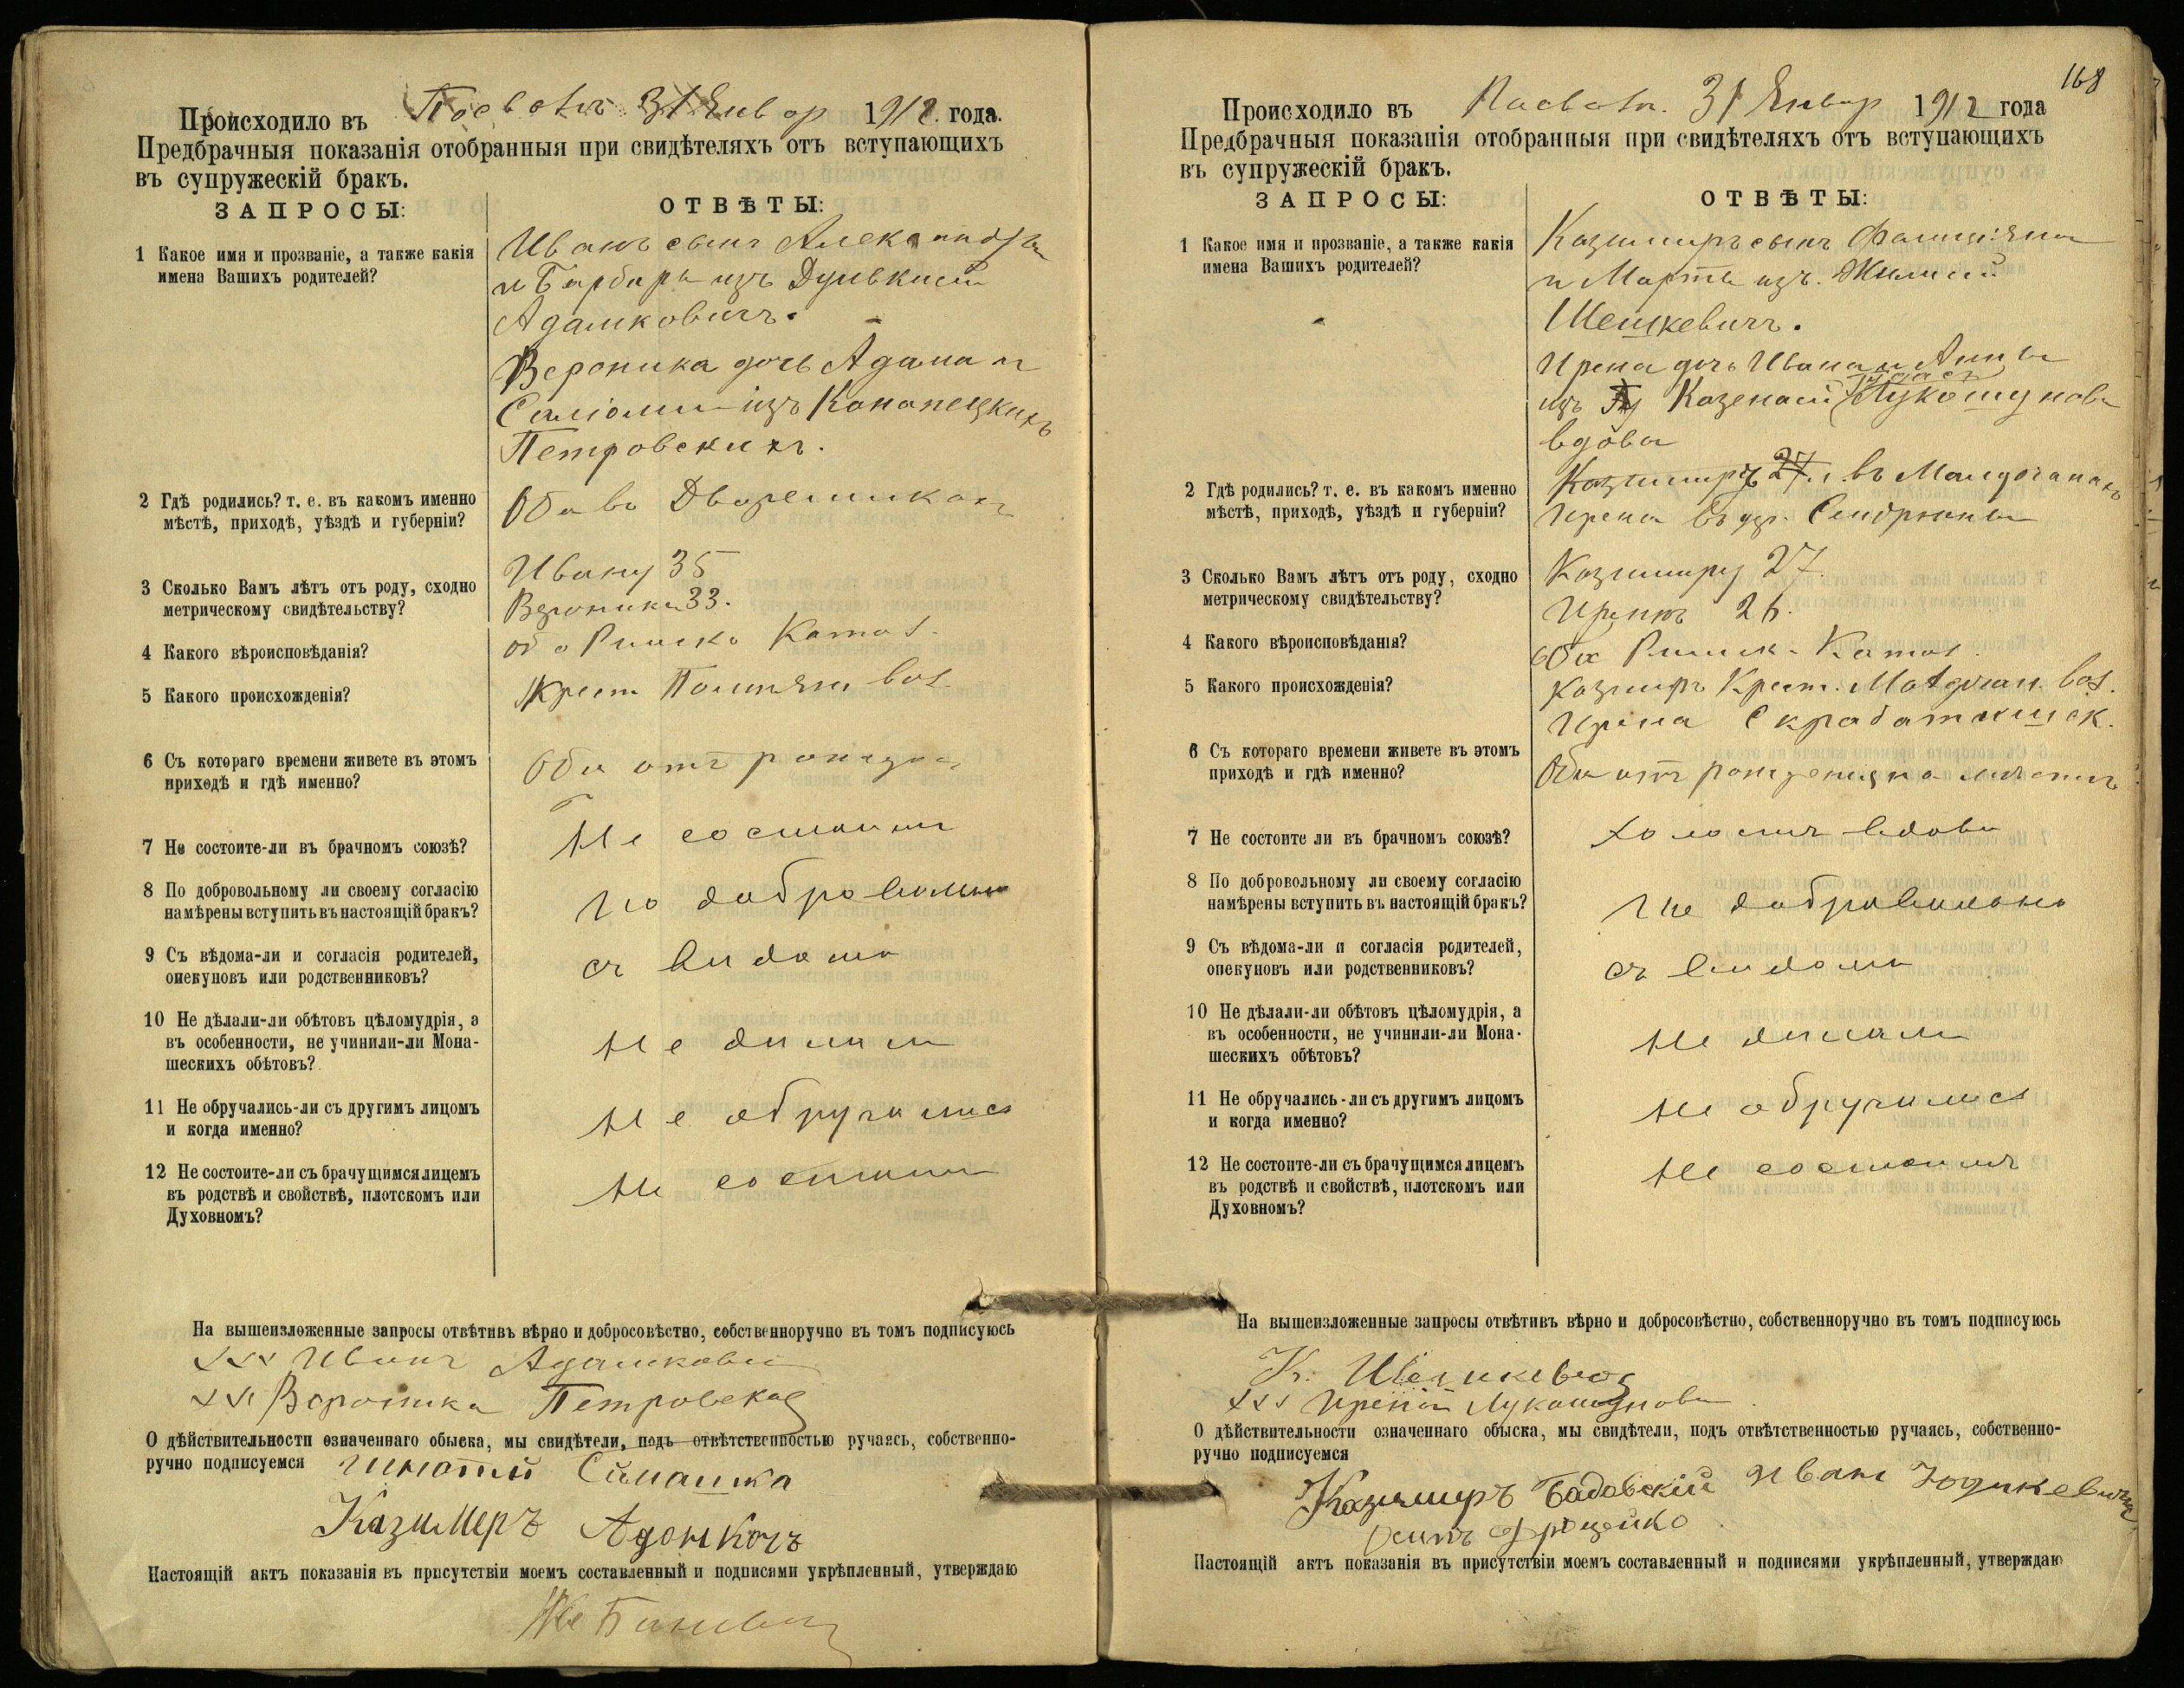 Происходило въ 31 Январ 1912 года.
Предбрачныя показанія отобранныя при свидѣтеляхъ отъ вступающихъ
въ супружескій бракъ.
ЗАПРОСЫ:
ОТВѢТЫ:
1 Какое имя и прозваніе, а также какія
имена Вашихъ родителей?
Иванъ сынъ Александра
и Барбары изъ
Адамковичъ.
Вероника дочь Адама и
Саліомии изъ Конопецкихъ
Петровскихъ.
2 Гдѣ родились? т. е. въ какомъ именно
мѣстѣ, приходѣ, уѣздѣ и губерніи?
Оба въ
3 Сколько Вамъ лѣтъ отъ роду, сходно
метрическому свидѣтельству?
Ивану 35
Вероники 33.
4 Какого вѣроисповѣданія?
оба Римско Катол.
5 Какого происхожденія?
Крест. вол.
6 Съ котораго времени живете въ этомъ
приходѣ и гдѣ именно?
Оба отъ
7 Не состоите-ли въ брачномъ союзѣ?
Не состоимъ
8 По добровольному ли своему согласію
намѣрены вступить въ настоящій бракъ?
По добровольно
9 Съ вѣдома-ли и согласія родителей,
опекуновъ или родственниковъ?
съ видома
10 Не дѣлали-ли обѣтовъ цѣломудрія, а
въ особенности, не учинили-ли Мона-
шескихъ обѣтовъ?
Не дилали
11 Не обручались-ли съ другимъ лицомъ
и когда именно?
Не обручались
12 Не состоите-ли съ брачущимся лицемъ
въ родствѣ и свойствѣ, плотскомъ или
Духовномъ?
Не состоимъ
На вышеизложенные запросы отвѣтивъ вѣрно и добросовѣстно, собственноручно въ томъ подписуюсь
ххх Иванъ Адамкович
ххх Вероника Петровская
О дѣйствительности означеннаго обыска, мы свидѣтели, подъ отвѣтственностью ручаясь, собственно-
ручно подписуемся
Казимеръ
Настоящій актъ показанія въ присутствіи моемъ составленный и подписями укрѣпленный, утверждаю
168
Происходило въ 31 Январ 1912 года
Предбрачныя показанія отобранныя при свидѣтеляхъ отъ вступающихъ
въ супружескій бракъ.
ЗАПРОСЫ:
ОТВѢТЫ:
1 Какое имя и прозваніе, а также какія
имена Вашихъ родителей?
Казимиръ сынъ Фелиціяна
и Марты изъ
Шешкевичъ.
Ирена дочь Ивана и Анны
изъ Лукошунова
вдова
2 Гдѣ родились? т. е. въ какомъ именно
мѣстѣ, приходѣ, уѣздѣ и губерніи?
Казимиръ въ
Ирена въ
3 Сколько Вамъ лѣтъ отъ роду, сходно
метрическому свидѣтельству?
Казимиру 27
Ирены 26.
4 Какого вѣроисповѣданія?
Оба Римск. Катол.
5 Какого происхожденія?
Казимиръ Крест. вол.
Ирена
6 Съ котораго времени живете въ этомъ
приходѣ и гдѣ именно?
Оба отъ рожденія на
7 Не состоите ли въ брачномъ союзѣ?
холостъ вдова
8 По добровольному ли своему согласію
намѣрены вступить въ настоящій бракъ?
По добровольно
9 Съ вѣдома-ли и согласія родителей,
опекуновъ или родственниковъ?
съ видома
10 Не дѣлали-ли обѣтовъ цѣломудрія, а
въ особенности, не учинили-ли Мона-
шескихъ обѣтовъ?
Не дилали
11 Не обручались-ли съ другимъ лицомъ
и когда именно?
Не обручились
12 Не состоите-ли съ брачущимся лицемъ
въ родствѣ и свойствѣ, плотскомъ или
Духовномъ?
Не состоимъ
На вышеизложенные запросы отвѣтивъ вѣрно и добросовѣстно, собственноручно въ томъ подписуюсь
К. Шешкевичъ
ххх Ирена Лукошунова
О дѣйствительности означеннаго обыска, мы свидѣтели, подъ отвѣтственностью ручаясь, собственно-
ручно подписуемся
Казимиръ Бадовскій Иван Юцкевичъ
Осипъ
Настоящій актъ показанія въ присутствіи моемъ составленный и подписями укрѣпленный, утверждаю